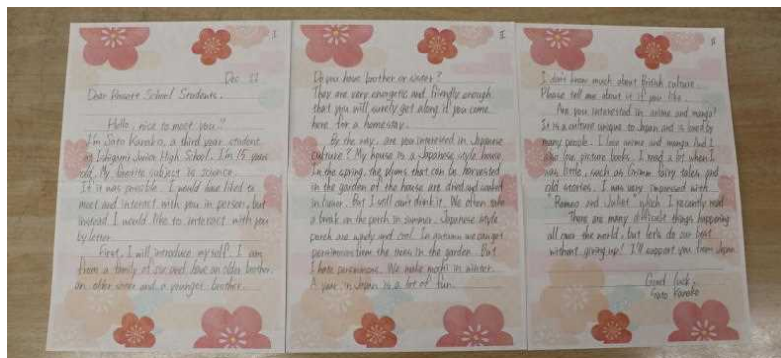 I
Dec. 17
Dear Rossett School Students,
Hello, nice to meet you?
I'm Sato Kanako, a third year student
at Ishigami Junior High School. I'm 15 years
old. My favorite subject is science.
If it was possible, I would have liked to
meet and interact with you in person, but
instead I would like to interact with you
by letter.
First, I will introduce myself. I am
from a family of six and have an older brother,
an older sister and a younger brother.
II
Do you have brother or sister?
They are very energetic and friendly enough
that you will surely get along if you come
here for a homestay.
By the way, are you interested in Japanese
culture? My house is a Japanese style house.
In the spring, the plums that can be harvested
in the garden of the house are dried and soaked
in liquor. But I still can't drink it. We often take
a break on the porch in summer. Japanese style
porch are windy and cool. In autumn we can get
persimmons from the trees in the garden. But
I hate persimmons. We make mochi in winter.
A year in Japan is a lot of fun.
I don't know much about British culture.
Please tell me about it if you like.
Are you interested in anime and manga?
It is a culture unique to Japan and is loved by
many people. I love anime and manga. And I
like picture books. I read a lot when I
was little, such as Grimm fairy tales and
old stories. I was very impressed with
Romeo and Juliet which I recently read.
There are many difficult things happening
all over the world, but let's do our best
without giving up! I'll support you from Japan.
Good luck,
Sato Kanako